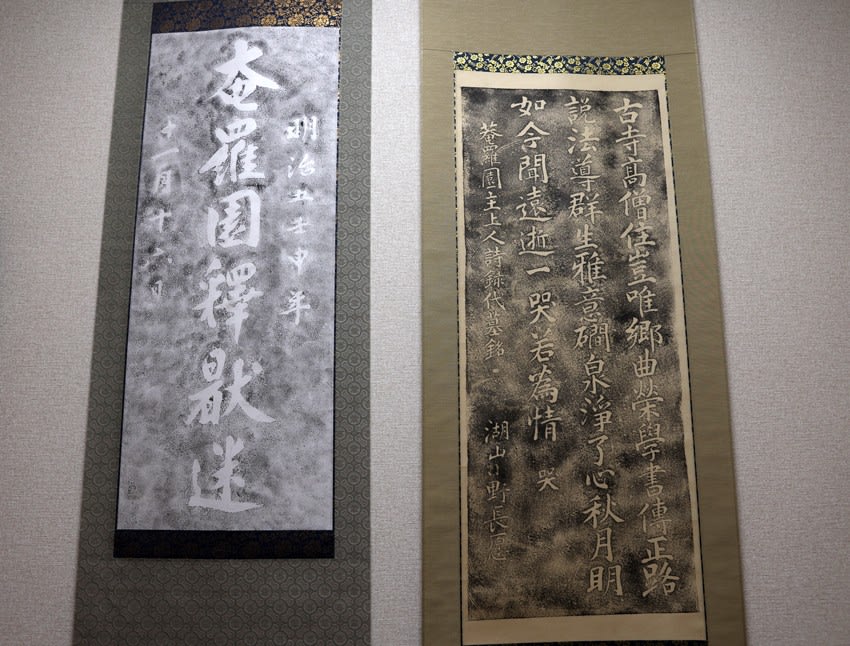 古寺高僧住豈唯郷曲榮學書傳正路
説法導群生雅意磵泉淨了心秋月明
如今聞遠逝一哭若為情 哭
菴羅園主上人詩録代墓銘 湖山小野長愿
明治五壬申年
奄羅園釋猒迷
十一月十六日